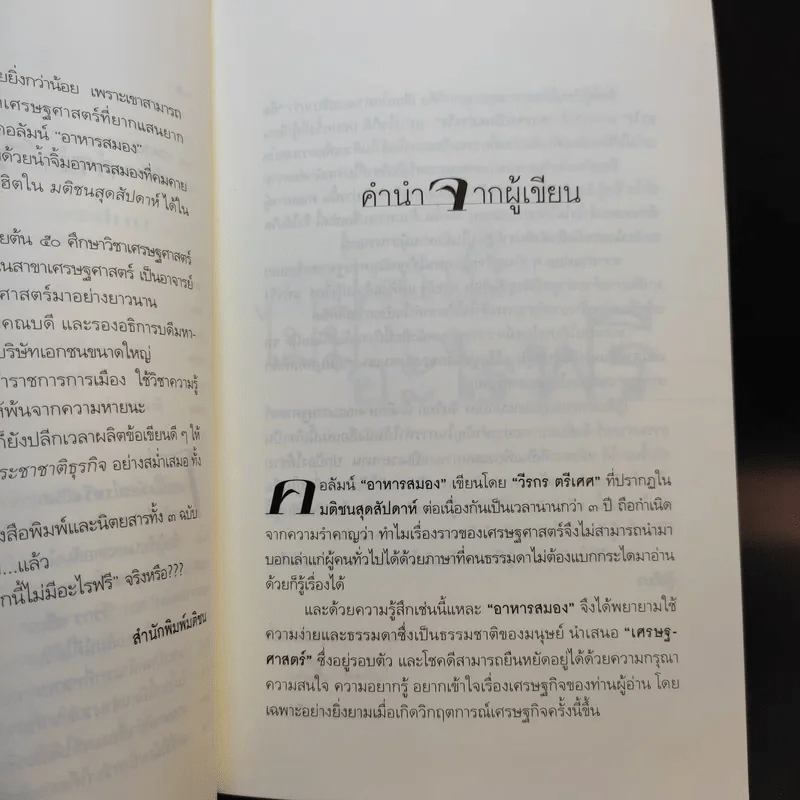 ยิ่งกว่าน้อย เพราะเขาสามารถ
เศรษฐศาสตร์ที่ยากแสนยาก
คอลัมน์ "อาหารสมอง"
ด้วยน้ำจิ้มอาหารสมองที่คมคาย
ฮิตใน มติชนสุดสัปดาห์ ได้ใน
ยต้น ๕๐ ศึกษาวิชาเศรษฐศาสตร์
นสาขาเศรษฐศาสตร์ เป็นอาจารย์
ศาสตร์มาอย่างยาวนาน
คณบดี และรองอธิการบดีมหา-
บริษัทเอกชนขนาดใหญ่
ราชการการเมือง ใช้วิชาความรู้
ห้พ้นจากความหายนะ
ก็ยังปลีกเวลาผลิตข้อเขียนดี ๆ ให้
ระชาชาติธุรกิจ อย่างสม่ำเสมอ ทั้ง
งสือพิมพ์และนิตยสารทั้ง ๓ ฉบับ
...แล้ว
กนี้ไม่มีอะไรฟรี" จริงหรือ???
สำนักพิมพ์มติชน
คำนำจากผู้เขียน
คอลัมน์ "อาหารสมอง" เขียนโดย "วีรกร ตรีเศศ" ที่ปรากฏใน
มติชนสุดสัปดาห์ ต่อเนื่องกันเป็นเวลานานกว่า ๓ ปี ถือกำเนิด
จากความรำคาญว่า ทำไมเรื่องราวของเศรษฐศาสตร์จึงไม่สามารถนำมา
บอกเล่าแก่ผู้คนทั่วไปได้ด้วยภาษาที่คนธรรมดาไม่ต้องแบกกระไดมาอ่าน
ด้วยก็รู้เรื่องได้
และด้วยความรู้สึกเช่นนี้แหละ "อาหารสมอง" จึงได้พยายามใช้
ความง่ายและธรรมดาซึ่งเป็นธรรมชาติของมนุษย์ นำเสนอ "เศรษฐ-
ศาสตร์" ซึ่งอยู่รอบตัว และโชคดีสามารถยืนหยัดอยู่ได้ด้วยความกรุณา
ความสนใจ ความอยากรู้ อยากเข้าใจเรื่องเศรษฐกิจของท่านผู้อ่าน โดย
เฉพาะอย่างยิ่งยามเมื่อเกิดวิกฤตการณ์เศรษฐกิจครั้งนี้ขึ้น